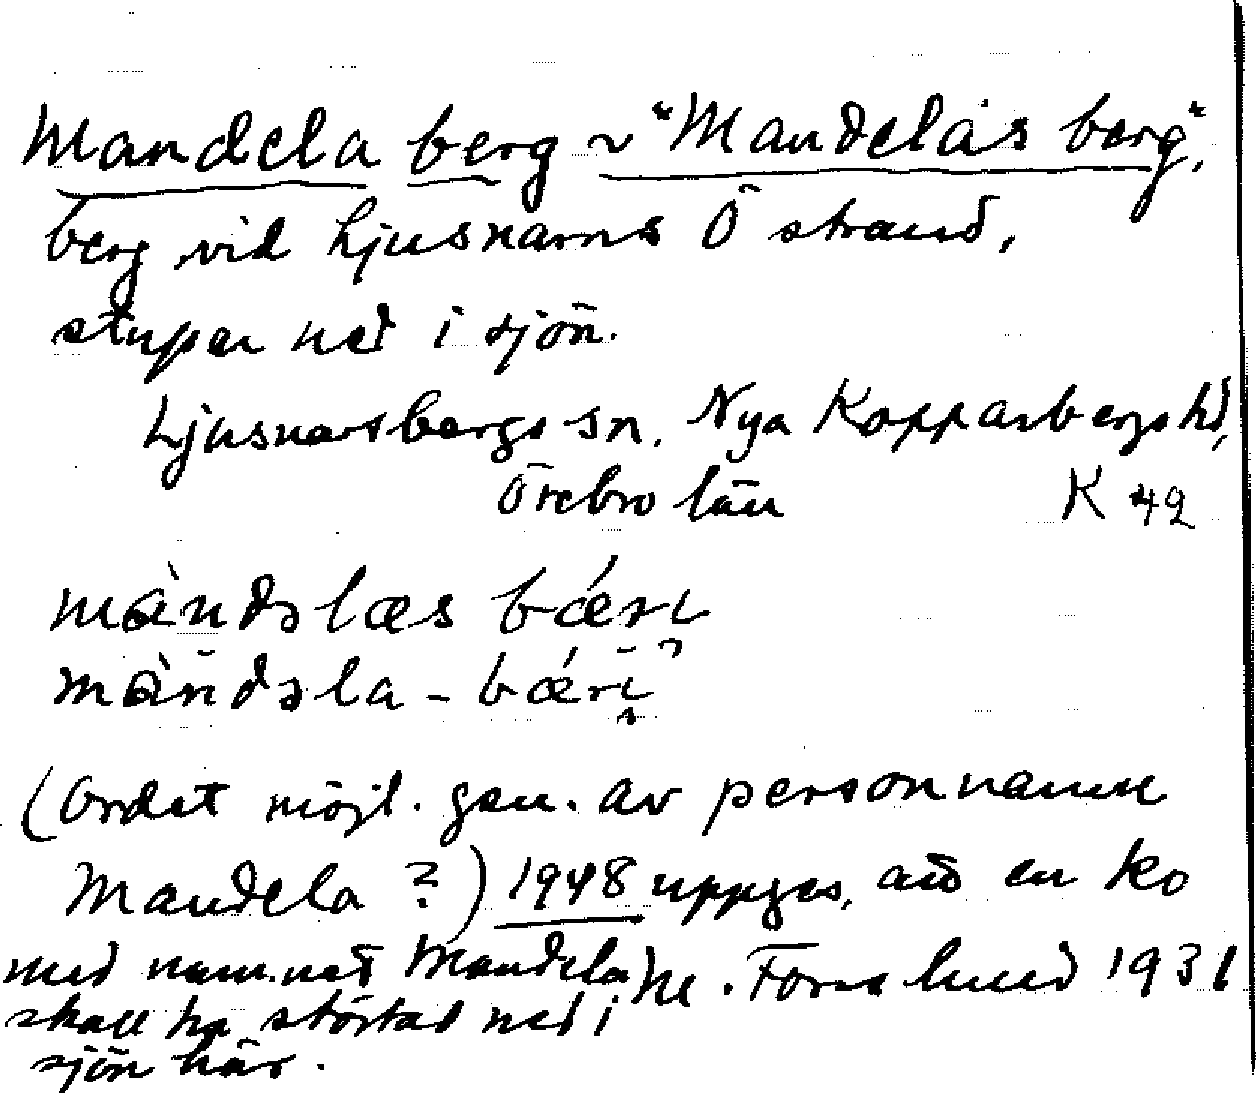 Mandela berg ~ "Mandelas berg",
berg vid Ljusnarns Ö strand,
stupar ned i sjön.
Ljusnarsbergs sn. Nya Kopparbergs hd,
Örebro län K 42
màndəlæs bǽrı
màndəla - bǽrı
(Ordet möjl. gen. av personnamn
Mandela ?) 1948 uppges, att en ko
med namnet Mandela M. Forslund 1931
skall ha störtat ned i
sjön här.